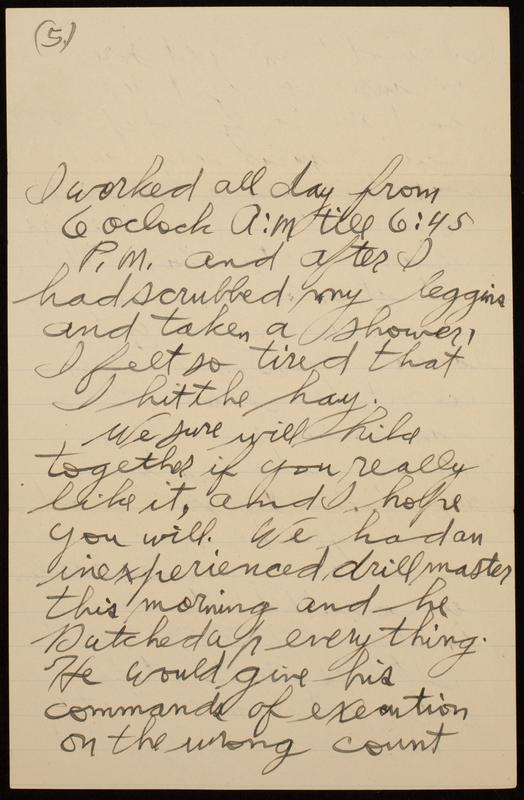 (5.)
I worked all day from
6 oclock A:M till 6:45
P.M. and after I
had scrubbed my leggins
and taken a shower,
I felt so tired that
I hit the hay.
We sure will hike
together if you really
like it, and I hope
you will. We had an
inexperienced drillmaster
this morning and he
Dutched up everything.
He would give his
commands of execution
on the wrong count